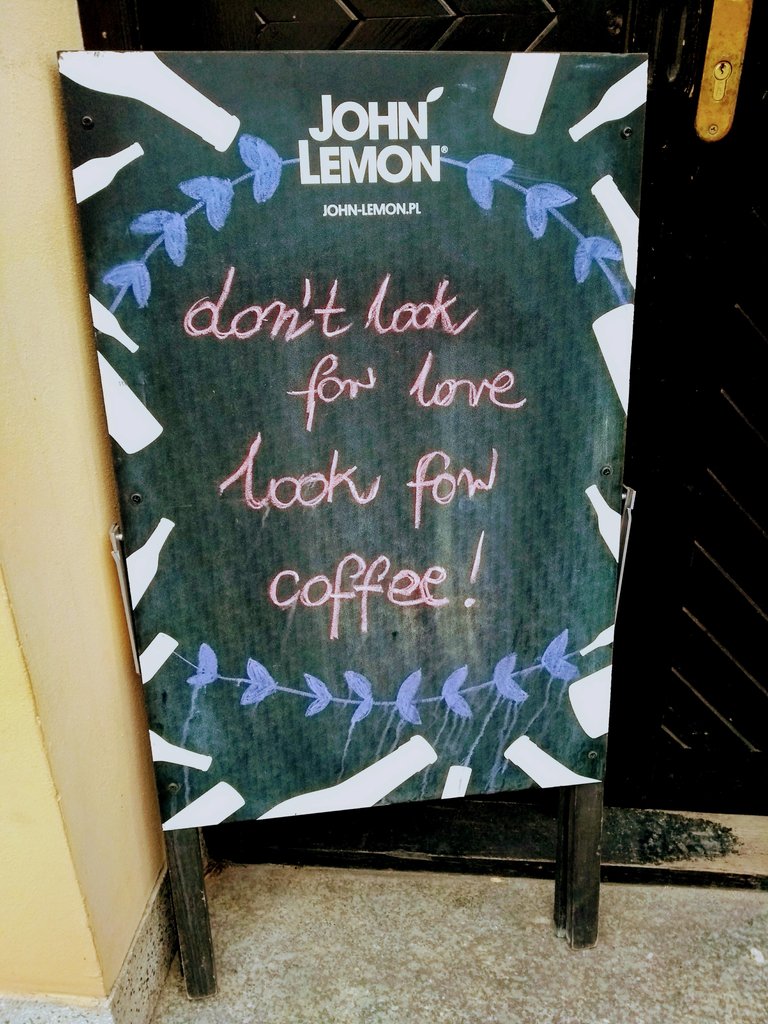 JOHN
LEMON®
JOHN-LEMON.PL
don't look
for love
look for
coffee!